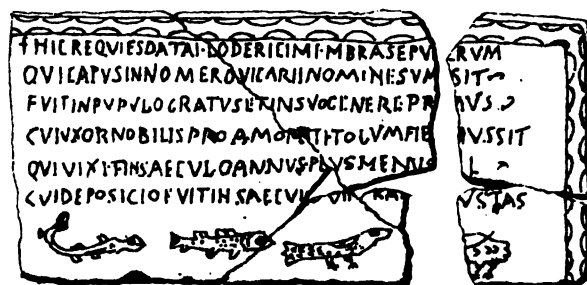 † HIC REQUIES DATA HLODERICI MEMBRA SEPU ERUM
QVI CAPVS IN NOMERO VICARII NOMINE SVM SIT
FVIT IN PVPVLO GRATVS ET IN SVO GENERE PR MVS
CVI VXOR NOBILIS PRO AMORE TITOLVM FIE IVSSIT
QVI VIXIT IN SAECVLO ANNVS PLVS MENVS L
CVI DEPOSICIO FVIT IN SAECVL VII KA VSTAS